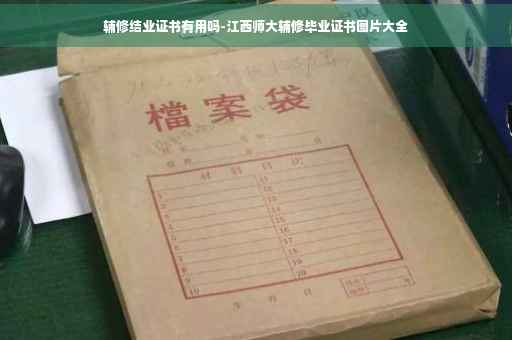 辅修结业证书有用吗-江西师大辅修毕业证书图片大全
檔案袋
材料目次
1 11
2 12
3 13
4 14
5 15
6 16
7 17
8 18
9 19
10 20
年 月 日